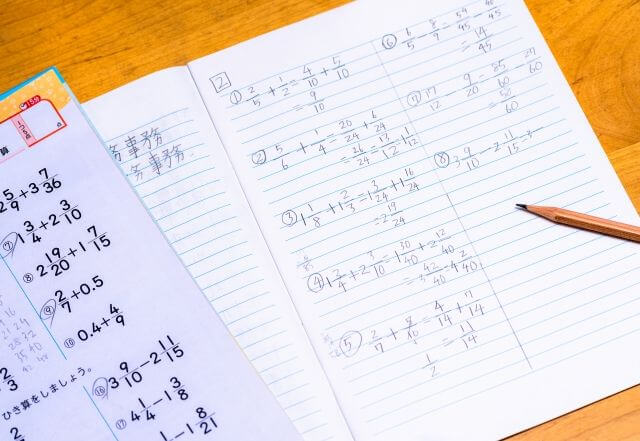 15分
算
2 5/9 + 3 7/36
⑦ 1 3/4 + 2 3/10
⑧ 2 19/20 + 1 7/15
⑨ 2/7 + 0.5
⑩ 0.4 + 4/9
ひき算をしましょう。
⑯ 3 9/10 − 2 11/15
⑰ 4 1/4 − 1 3/8
− 1 8/21
務事務
務事務
2
① 2/5 + 1/2 = 4/10 + 5/10
= 9/10
② 5/6 + 1/4 = 20/24 + 6/24
= 26/24 = 13/12 = 1 1/12
③ 1 1/8 + 1 2/3 = 1 3/24 + 1 16/24
= 2 19/24
④ 1 3/4 + 2 3/10 = 1 30/40 + 2 12/40
= 3 42/40 = 4 2/40
⑤ 2/7 + = 4/14 + 7/14
1/2 = 11/14
⑥ 6/5 − 8/9 = 54/45 − 40/45
= 14/45
⑦ 17/12 − 9/20 = 85/60 − 27/60
= 58/60
⑧ 3 9/10 − 2 11/15 = 3